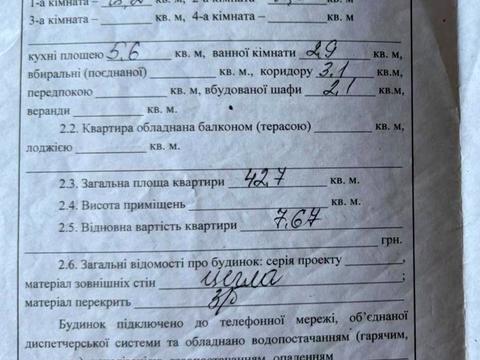 1-а кімната – кв. м, 2-а кімната – кв. м
3-а кімната – кв. м, 4-а кімната – кв. м
кухні площею 5,6 кв. м, ванної кімнати 2,9 кв. м,
вбиральні (поєднаної) кв. м., коридору 3,1 кв. м,
передпокою кв. м, вбудованої шафи 2,1 кв.м,
веранди кв. м.
2.2. Квартира обладнана балконом (терасою) кв. м,
лоджією кв. м.
2.3. Загальна площа квартири 42,7 кв. м.
2.4. Висота приміщень кв. м.
2.5. Відновна вартість квартири 7,67
грн.
2.6. Загальні відомості про будинок: серія проекту ,
матеріал зовнішніх стін цегла ;
матеріал перекрить з/б
Будинок підключено до телефонної мережі, об'єднаної
диспетчерської системи та обладнано водопостачанням (гарячим,
водопостачанням, опаленням